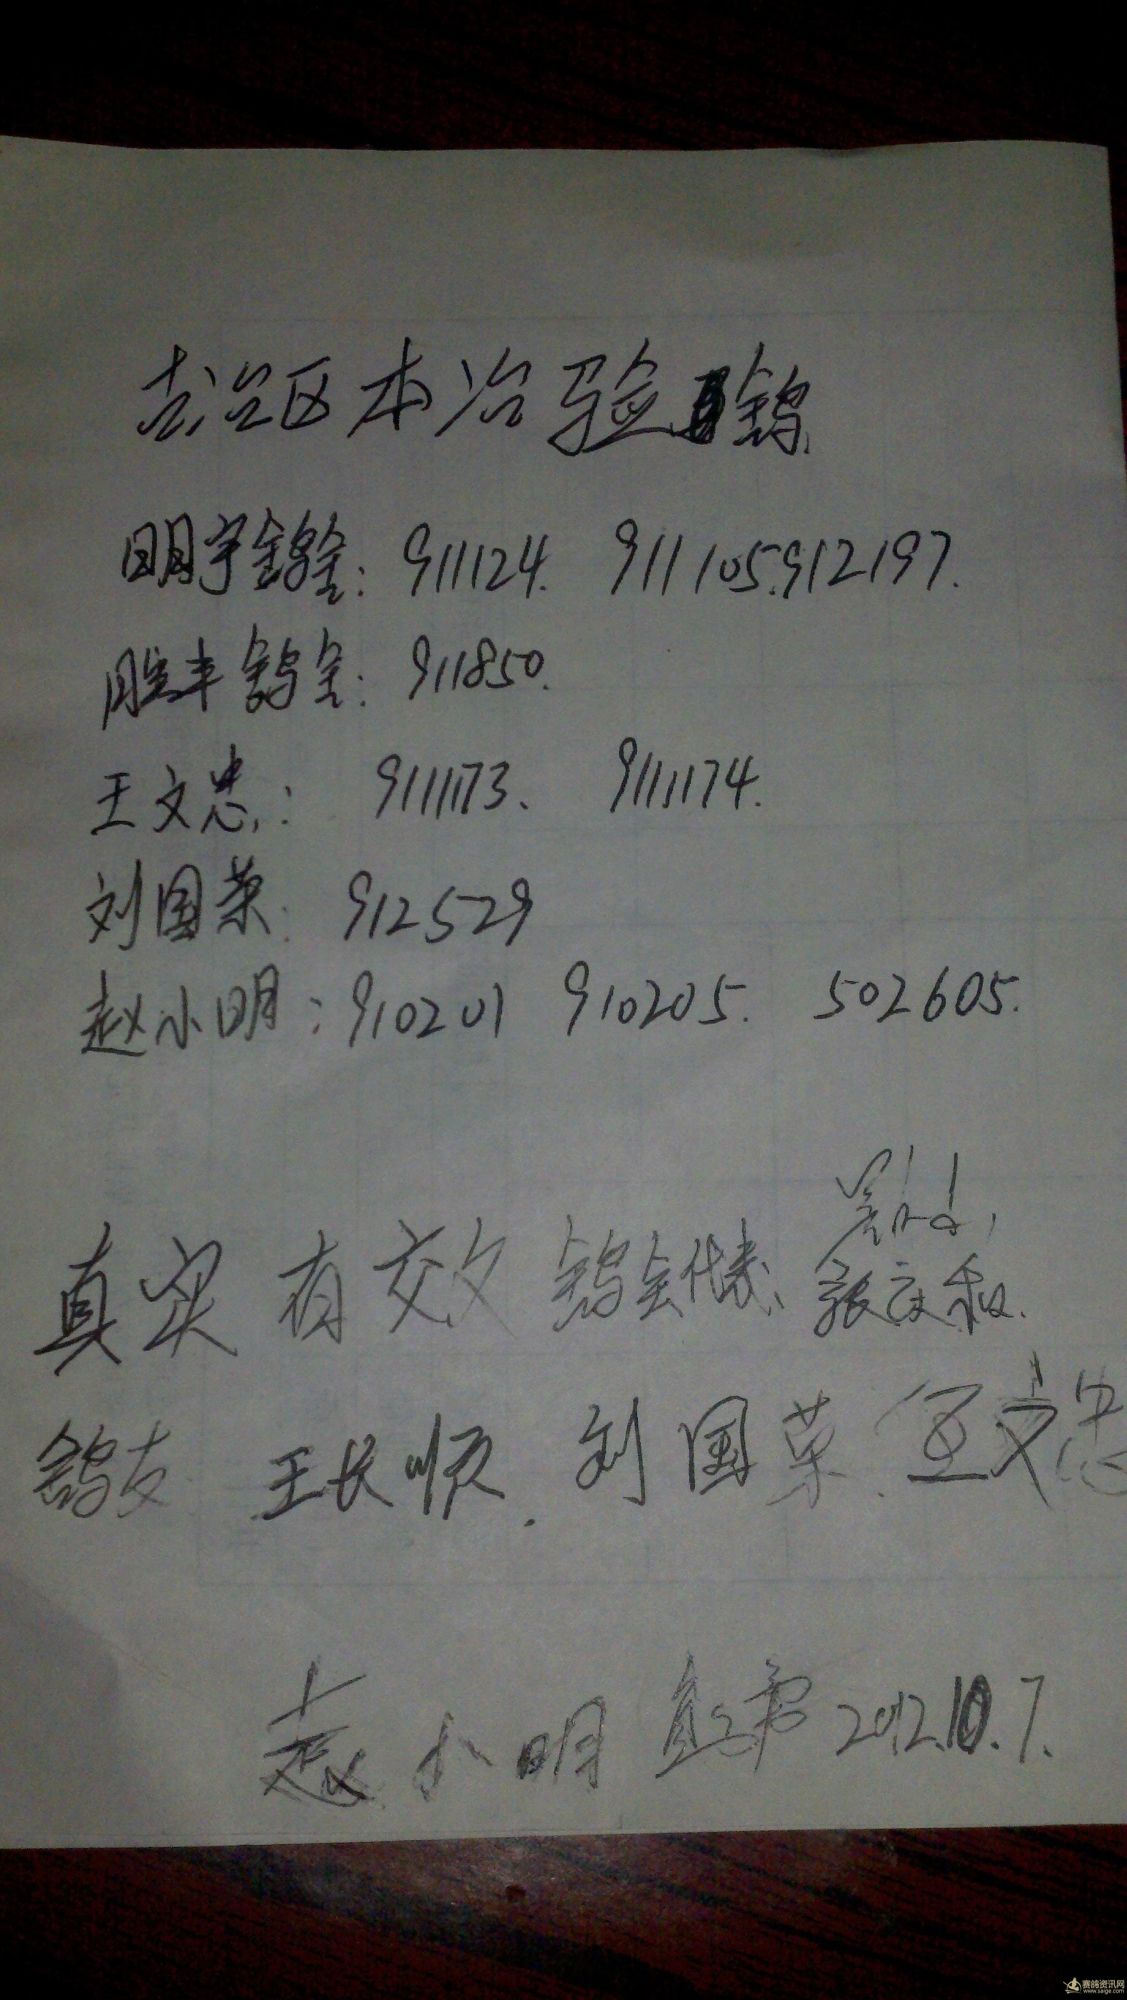 古冶区本冶验鸽
明宇鸽舍: 911124. 911105. 912197.
胜丰鸽舍: 911850.
王文忠: 9111173. 9111174.
刘国荣: 912529
赵小明: 910201 910205. 502605.
真实有效 鸽会代表 张文和.
鸽友 王长顺. 刘国荣. 王文忠
赵小明 2012.10.7.
赛鸽资讯网
www.saige.com